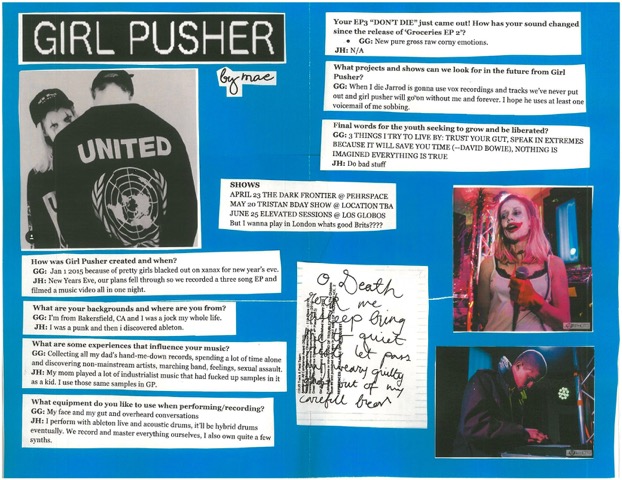 GIRL PUSHER
by mac
UNITED
How was Girl Pusher created and when?
GG: Jan 1 2015 because of pretty girls blacked out on xanax for new year's eve.
JH: New Years Eve, our plans fell through so we recorded a three song EP and
filmed a music video all in one night.
What are your backgrounds and where are you from?
GG: I'm from Bakersfield, CA and I was a jock my whole life.
JH: I was a punk and then i discovered ableton.
What are some experiences that influence your music?
GG: Collecting all my dad's hand-me-down records, spending a lot of time alone
and discovering non-mainstream artists, marching band, feelings, sexual assault.
JH: My mom played a lot of industrialist music that had fucked up samples in it
as a kid. I use those same samples in GP.
What equipment do you like to use when performing/recording?
GG: My face and my gut and overheard conversations
JH: I perform with ableton live and acoustic drums, it'll be hybrid drums
eventually. We record and master everything ourselves, I also own quite a few
synths.
SHOWS
APRIL 23 THE DARK FRONTIER @ PEHRSPACE
MAY 20 TRISTAN BDAY SHOW @ LOCATION TBA
JUNE 25 ELEVATED SESSIONS @ LOS GLOBOS
But I wanna play in London whats good Brits????
O Death
me
bring
me to quiet
let pass
weary guilty
out of my
Your EP3 "DON'T DIE" just came out! How has your sound changed
since the release of 'Groceries EP 2'?
• GG: New pure gross raw corny emotions.
JH: N/A
What projects and shows can we look for in the future from Girl
Pusher?
GG: When I die Jarrod is gonna use vox recordings and tracks we've never put
out and girl pusher will go on without me and forever. I hope he uses at least one
voicemail of me sobbing.
Final words for the youth seeking to grow and be liberated?
GG: 3 THINGS I TRY TO LIVE BY: TRUST YOUR GUT, SPEAK IN EXTREMES
BECAUSE IT WILL SAVE YOU TIME (--DAVID BOWIE), NOTHING IS
IMAGINED EVERYTHING IS TRUE
JH: Do bad stuff